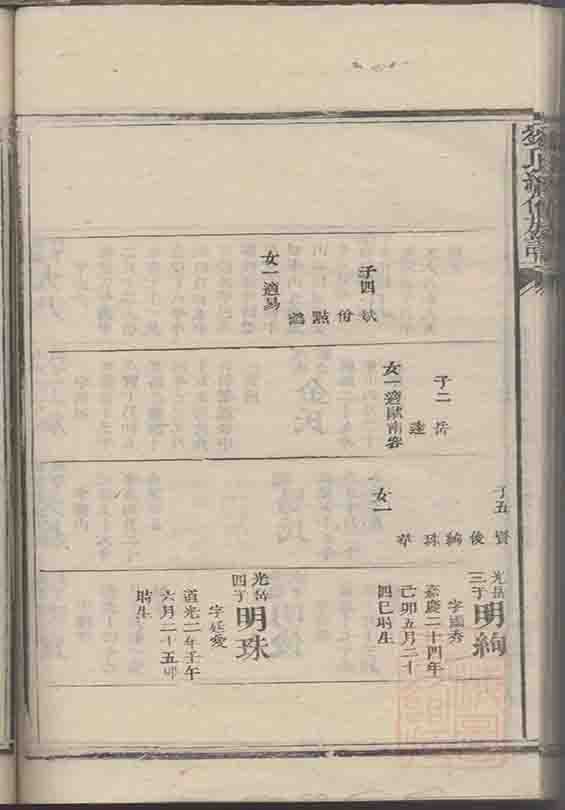 子四
斌
份
點
鵷
女一適易
子二
岳
蓬
女一適歐南容
子五
賢
俊
絢
珠
華
女一
光岳
三子
明絢
字國秀
嘉慶二十四年
己卯五月二十
四巳時生
光岳
四子
明珠
字廷愛
道光二年壬午
六月二十五卯
時生